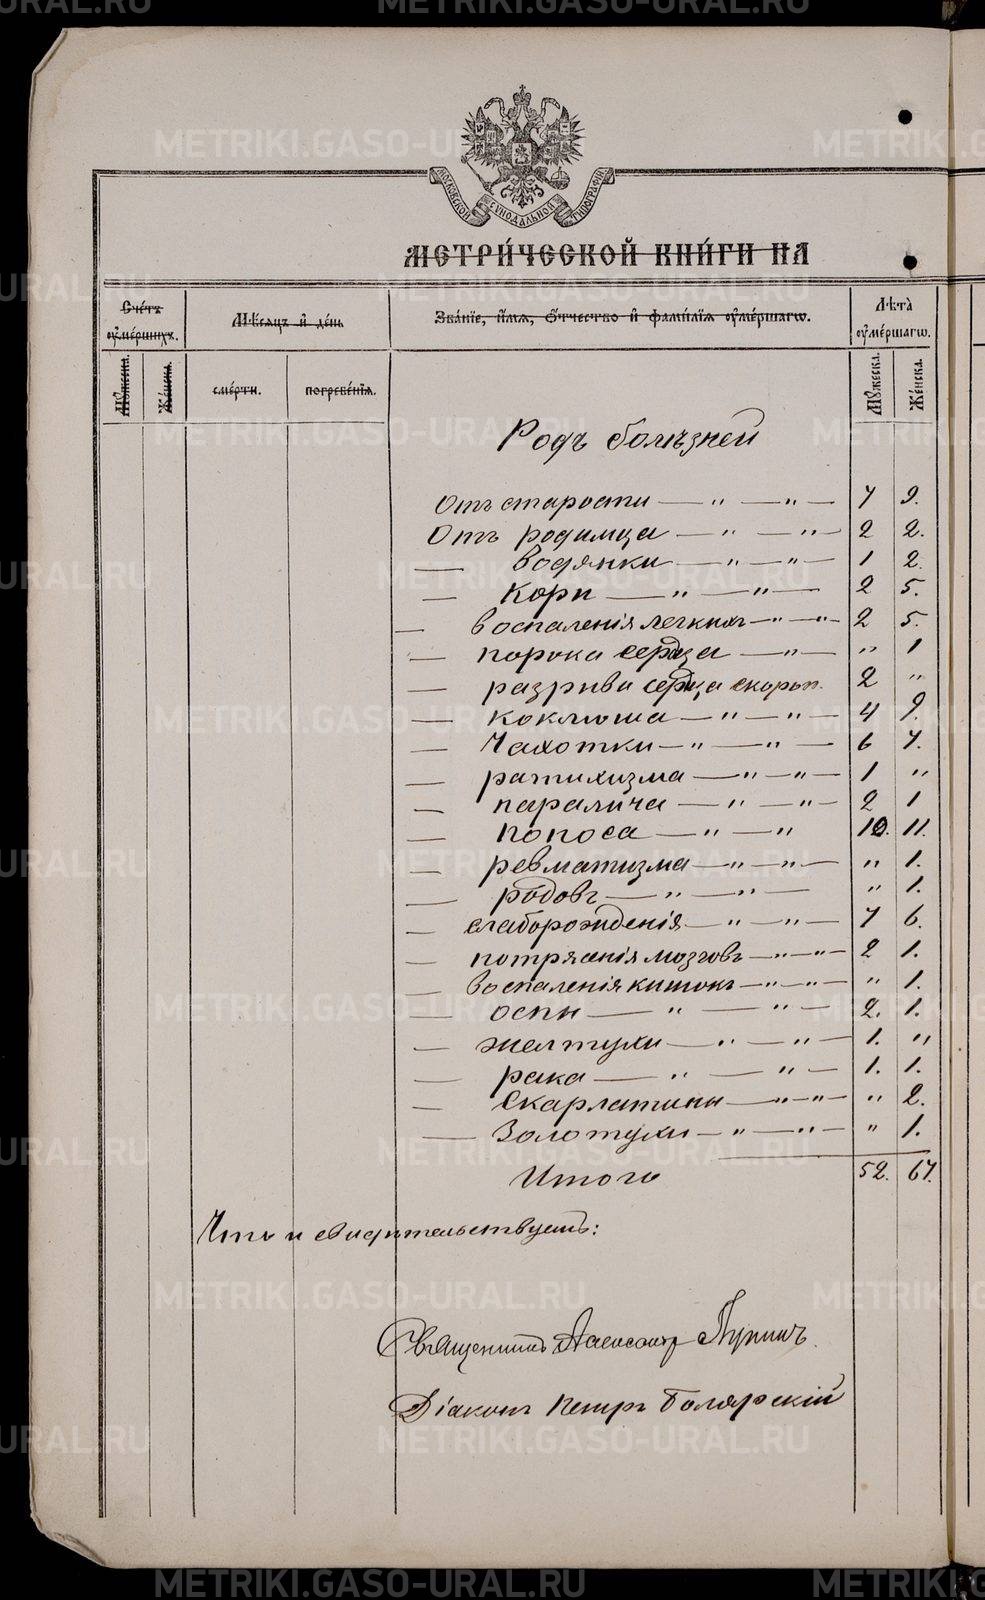 МОСКОВСКОЙ СУНОДАЛЬНОЙ ТИПОГРАФІИ
МЕТРИ́ЧЕСКОЙ КНИ́ГИ НА
Сче́тъ оумершихъ.
Мѣсяцъ и де́нь
Зва́ніе, и́мя, о́тчество и фами́лія оуме́ршагѡ.
Лѣта̀ оуме́ршагѡ.
Му́жеска.
Же́нска.
сме́рти.
погребе́нія.
Му́жеска.
Же́нска.
Родъ болѣзней
Отъ старости — „ — „ — 7 9.
Отъ родимца — „ — „ — 2 2.
— водянки — „ — „ — 1 2.
— Кори — „ — „ — 2 5.
— воспаленія легкихъ — „ — „ — 2 5.
— порока сердца — „ — „ 1
— разрыва сердца скороп. 2 „
— коклюша — „ — „ — 4 9.
— Чахотки — „ — „ — 6 7.
— ратихизма — „ — „ — 1 „
— паралича — „ — „ — 2 1
— поноса — „ — „ 10. 11.
— ревматизма — „ — „ — „ 1.
— родовъ — „ — „ — „ 1.
— слаборожденія — „ — „ — 7 6.
— потрясенія мозговъ — „ — „ — 2 1.
— воспаленія кишокъ — „ — „ — „ 1.
— оспы — „ — „ — 2. 1.
— желтухи — „ — „ — 1. „
— рака — „ — „ — 1. 1.
— Скарлатины — „ — „ — „ 2.
— Золотухи — „ — „ — „ 1.
Итого 52. 67.
Что и свидѣтельствуемъ:
Священникъ Александръ
Діаконъ Петръ Болярскій
METRIKI.GASO-URAL.RU